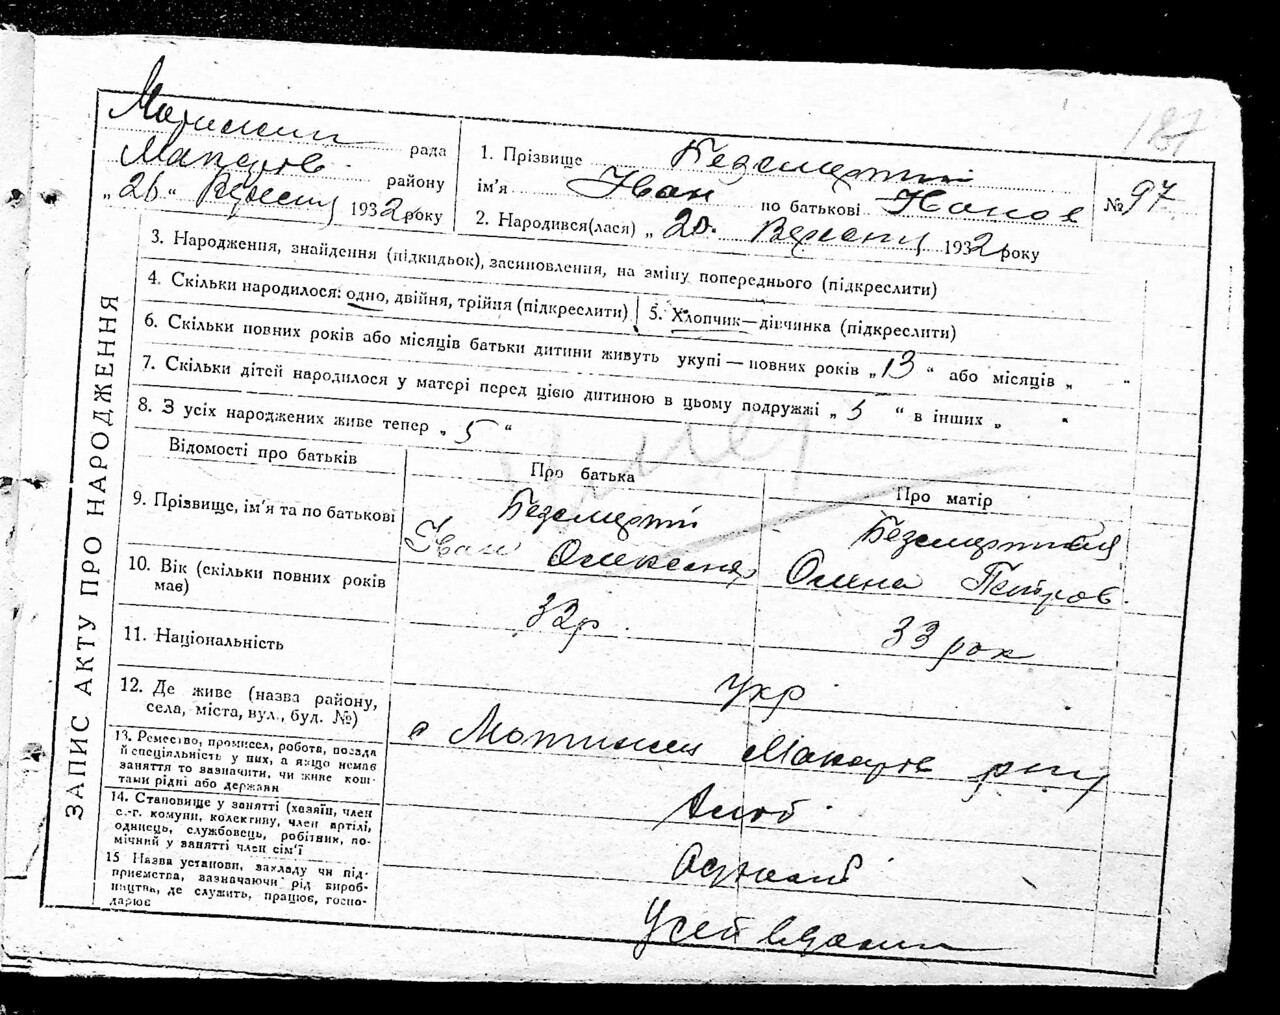 187
Мотижин рада
Макарів району
„26“ Вересня 1932 року
1. Прізвище Безсмертній
ім'я Іван по батькові Іванов
2. Народився(лася) „20. Вересня 1932 року
№ 97
ЗАПИС АКТУ ПРО НАРОДЖЕННЯ
3. Народження, знайдення (підкидьок), засиновлення, на зміну попереднього (підкреслити)
4. Скільки народилося: одно, двійня, трійня (підкреслити)
5. Хлопчик—дівчинка (підкреслити)
6. Скільки повних років або місяців батьки дитини живуть укупі—повних років „13“ або місяців „ “
7. Скільки дітей народилося у матері перед цією дитиною в цьому подружжі „5“ в інших „ “
8. З усіх народжених живе тепер „5“
Відомості про батьків
Про батька
Про матір
9. Прізвище, ім'я та по батькові
Безсмертній
Іван Олексієв
Безсмертная
Олена Петров.
10. Вік (скільки повних років
має)
32 р.
33 рок
11. Національність
укр
12. Де живе (назва району,
села, міста, вул., буд. №)
с Мотижин Макарів р-ну
13. Ремество, промисел, робота, посада
й спеціяльність у них, а якщо немає
заняття то зазначити, чи живе кош-
тами рідні або держави
14. Становище у занятті (хазяїн, член
с.-г. комуни, колективу, член артілі,
одинець, службовець, робітник, по-
мічний у занятті член сім'ї
15 Назва установи, закладу чи під-
приємства, зазначаючи рід вироб-
ництва, де служить, працює, госпо-
дарює